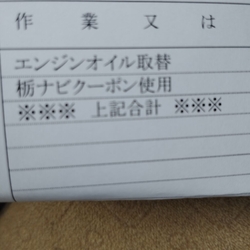 作業又は
エンジンオイル取替
栃ナビクーポン使用
※※※ 上記合計 ※※※